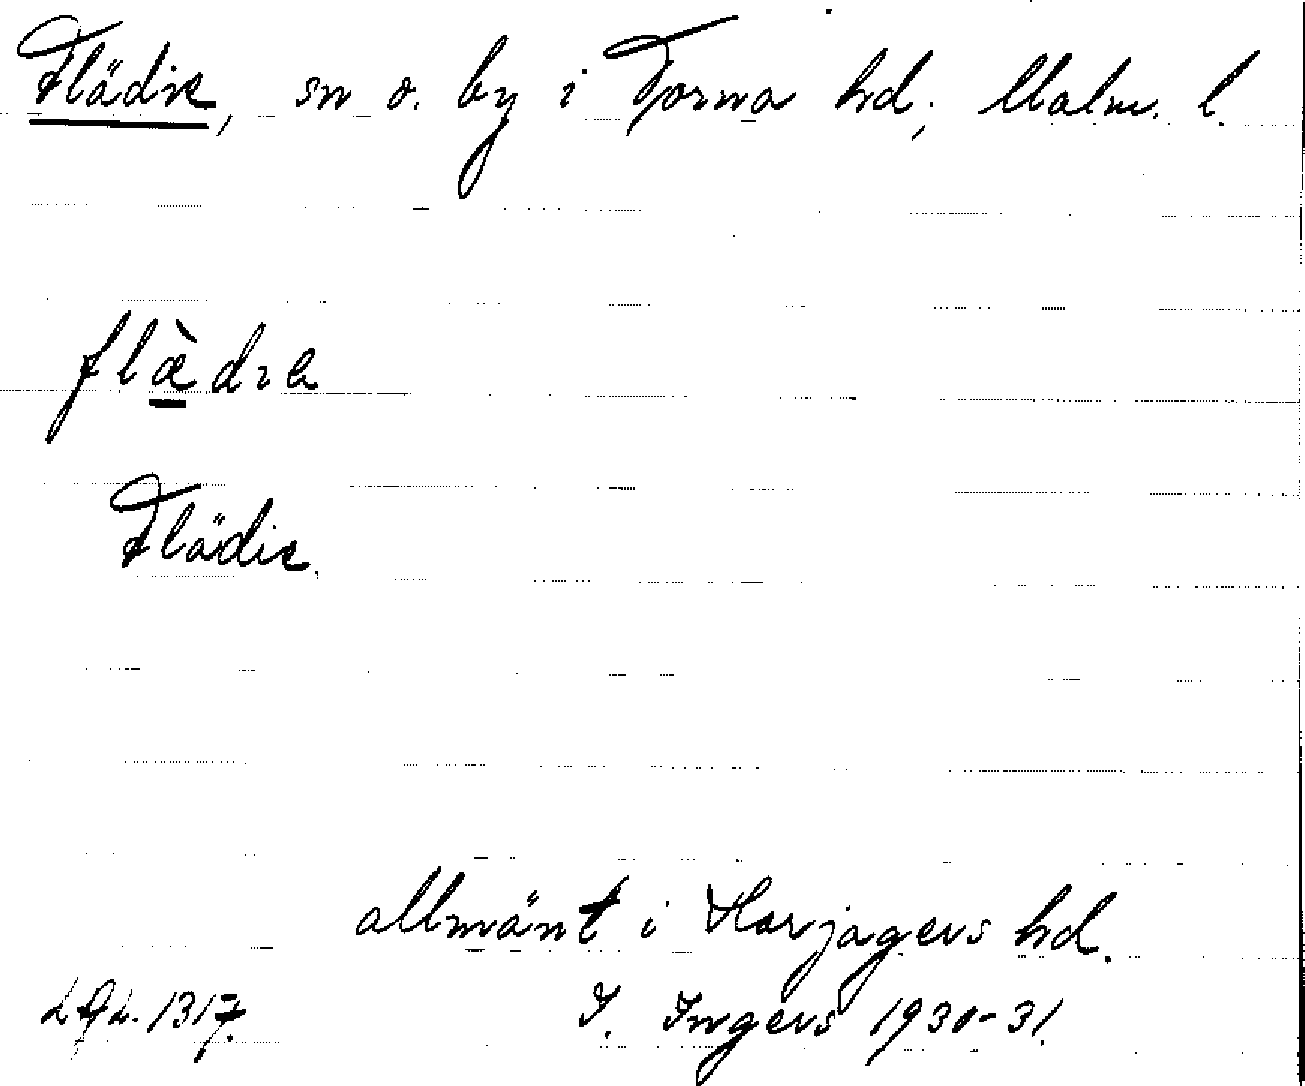 Flädie, sn o. by i Torna hd, Malm. l.
flæ̀dɩa
Flädie.
allmänt i Harjagers hd.
1317. I. Ingers 1930-31.